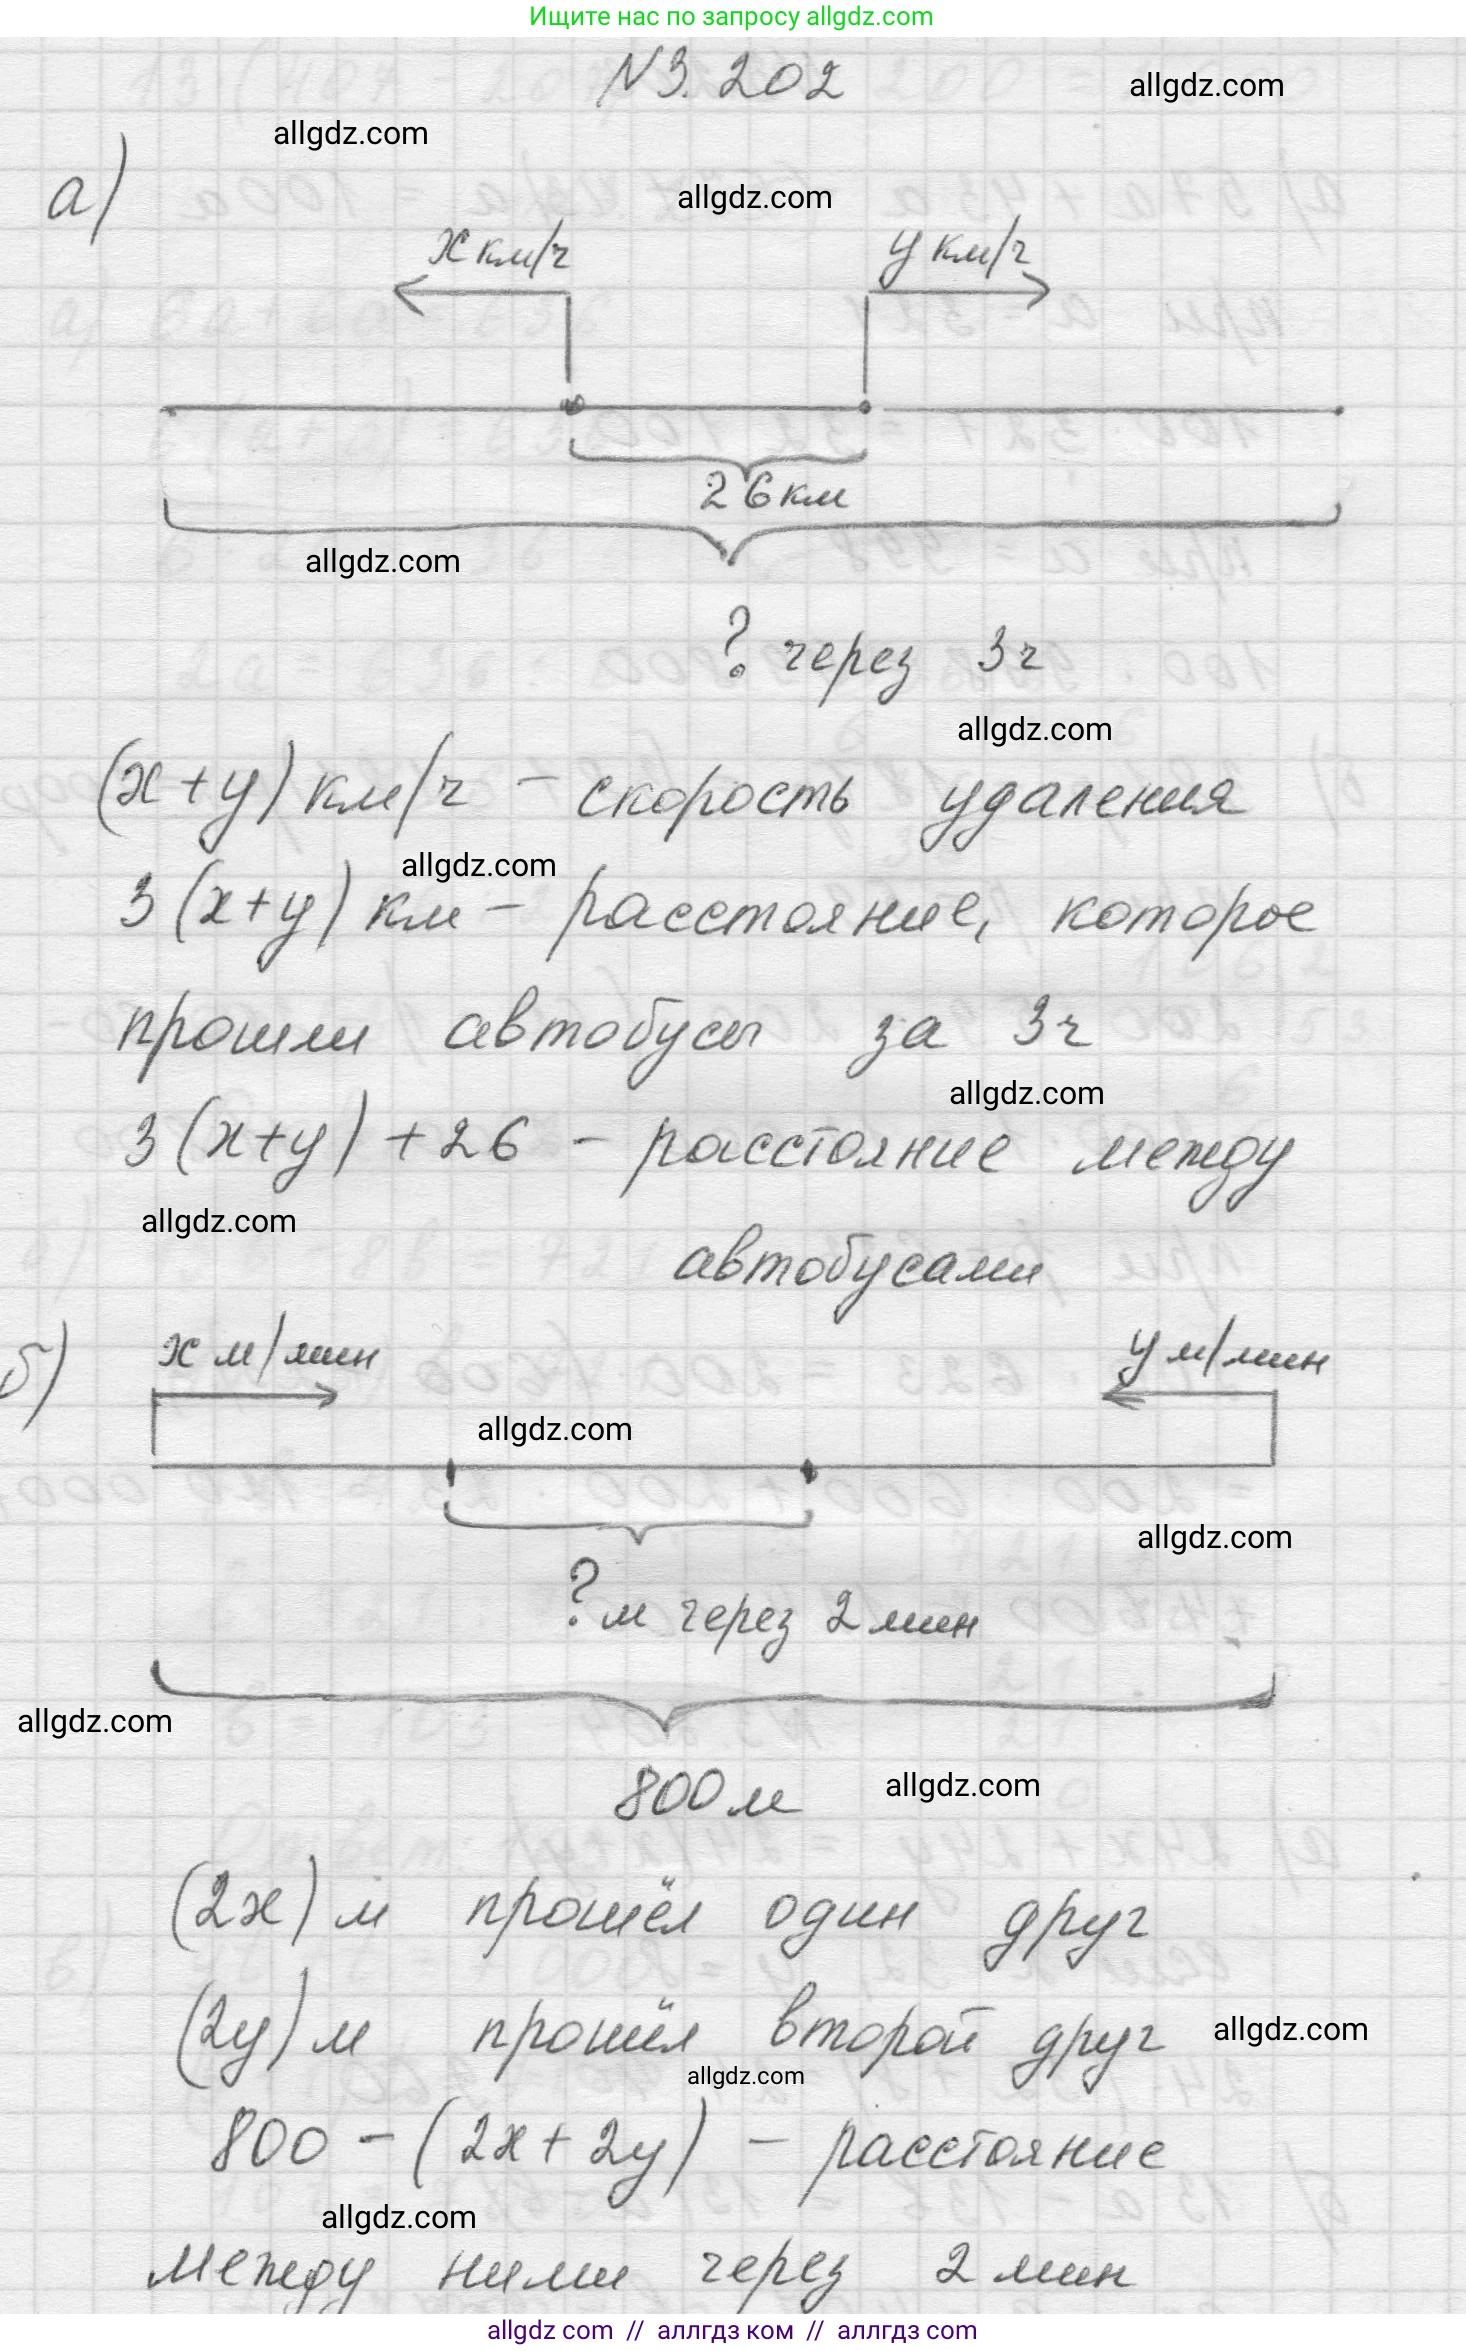 Ищите нас по запросу allgdz.com
N3.202
allgdz.com
allgdz.com
а)
allgdz.com
x км/ч
y км/ч
26 км
allgdz.com
? через 3ч
allgdz.com
(x+y) км/ч - скорость удаления
allgdz.com
3(x+y) км - расстояние, которое
прошли автобусы за 3ч
allgdz.com
3(x+y)+26 - расстояние между
allgdz.com
автобусами
б)
x м/мин
y м/мин
allgdz.com
allgdz.com
? м через 2 мин
allgdz.com
800 м
allgdz.com
(2x) м прошёл один друг
(2y) м прошёл второй друг
allgdz.com
allgdz.com
800 - (2x + 2y) - расстояние
allgdz.com
между ними через 2 мин
allgdz com // аллгдз ком // аллгдз com